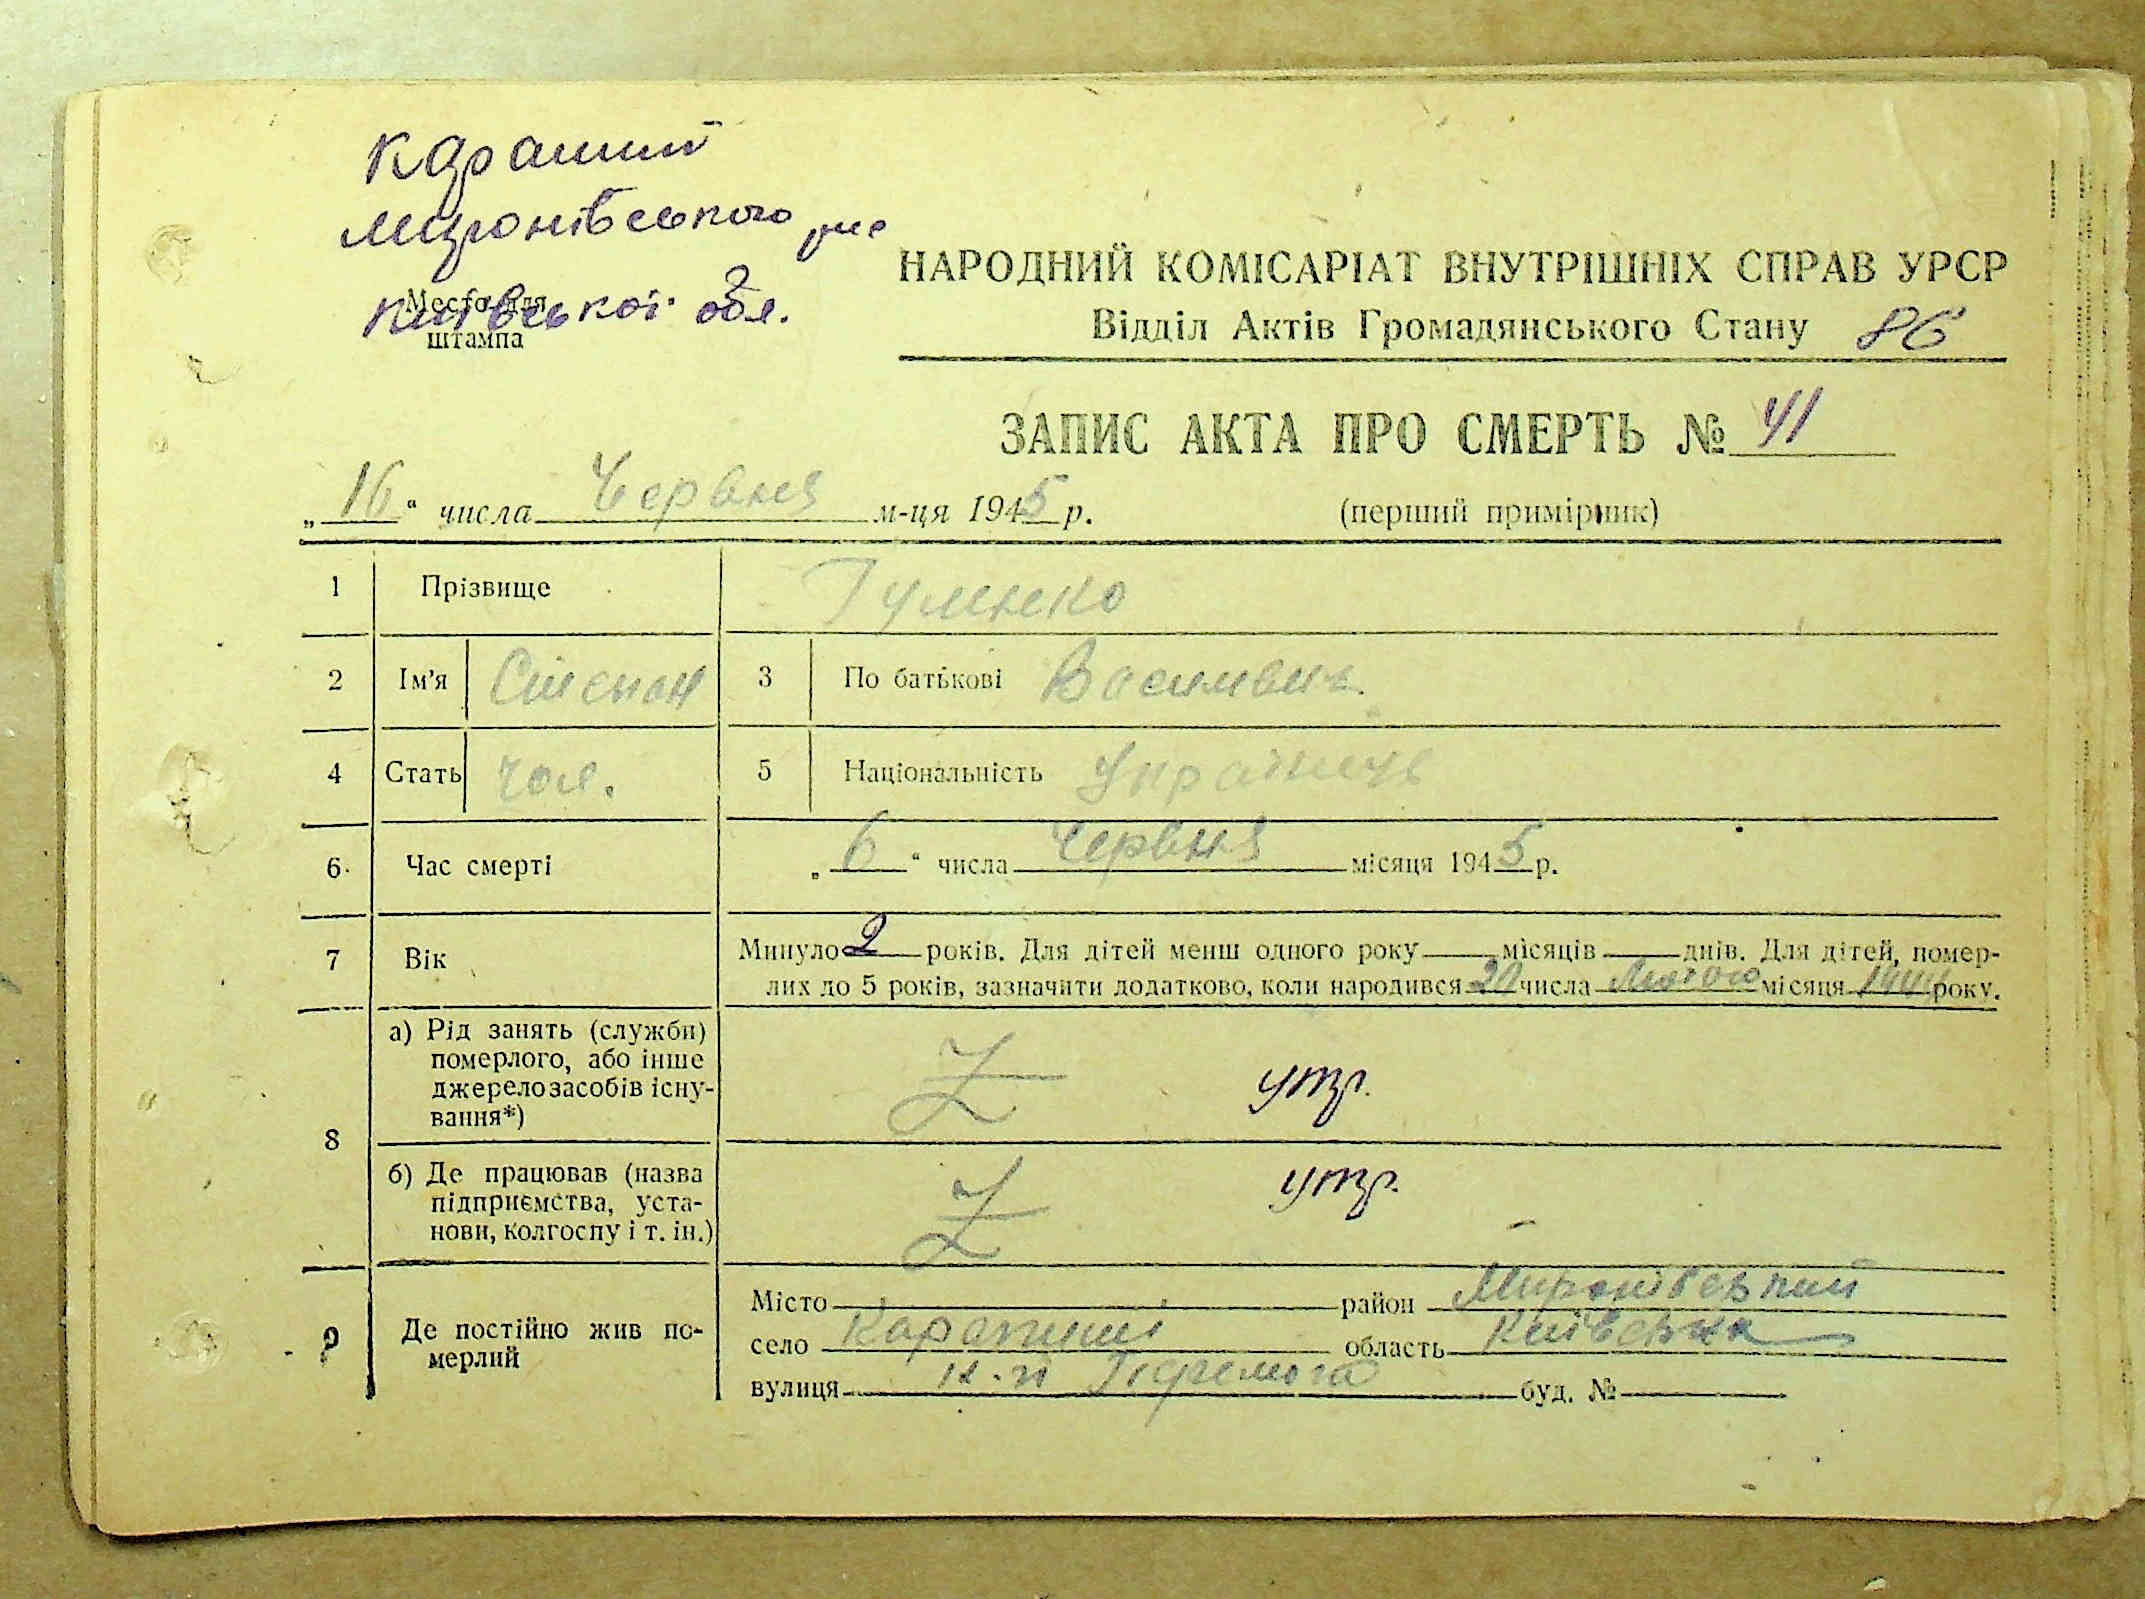 Карапиші
Миронівського р-на
Київської обл.
Место для
штампа
НАРОДНИЙ КОМІСАРІАТ ВНУТРІШНІХ СПРАВ УРСР
Відділ Актів Громадянського Стану 86
ЗАПИС АКТА ПРО СМЕРТЬ № 41
„16“ числа Червня м-ця 1945 р. (перший примірник)
1 Прізвище Гуменко
2 Ім'я Степан 3 По батькові Васильович
4 Стать чол. 5 Національність Українець
6 Час смерті „6“ числа Червня місяця 1945 р.
7 Вік Минуло 2 років. Для дітей менш одного року місяців днів. Для дітей, помер-
лих до 5 років, зазначити додатково, коли народився 20 числа Лютого місяця року.
8 а) Рід занять (служби)
померлого, або інше
джерело засобів існу-
вання*) утр.
б) Де працював (назва
підприємства, уста-
нови, колгоспу і т. ін.) утр.
9 Де постійно жив по-
мерлий
Місто район Миронівський
село Карапиші область Київська
вулиця к-п Перемога буд. №